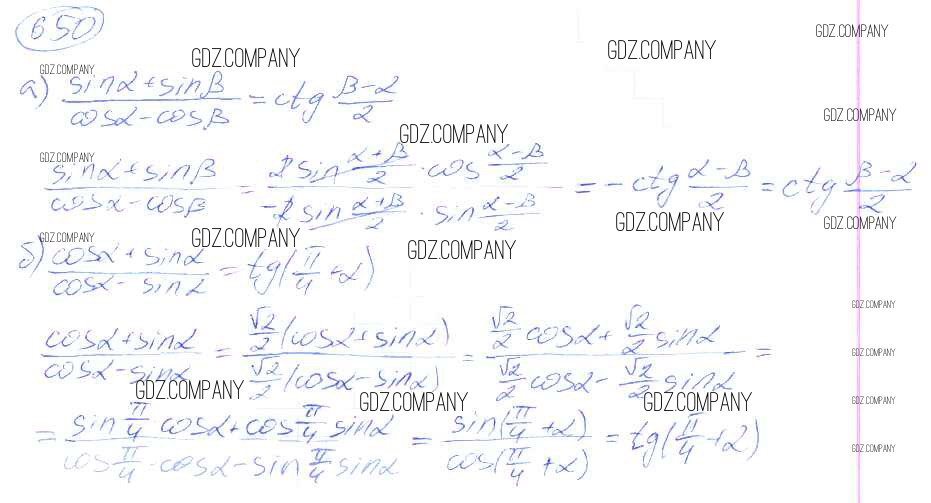 650
GDZ.COMPANY GDZ.COMPANY GDZ.COMPANY
GDZ.COMPANY
а) (sinα + sinβ)/(cosα - cosβ) = ctg (β-α)/2
GDZ.COMPANY GDZ.COMPANY
GDZ.COMPANY
(sinα + sinβ)/(cosα - cosβ) = (2 sin (α+β)/2 · cos (α-β)/2)/(-2 sin (α+β)/2 · sin (α-β)/2) = -ctg (α-β)/2 = ctg (β-α)/2
GDZ.COMPANY GDZ.COMPANY
GDZ.COMPANY GDZ.COMPANY GDZ.COMPANY
б) (cosα + sinα)/(cosα - sinα) = tg(π/4 + α)
GDZ.COMPANY
(cosα + sinα)/(cosα - sinα) = (√2/2 (cosα + sinα))/(√2/2 (cosα - sinα)) = (√2/2 cosα + √2/2 sinα)/(√2/2 cosα - √2/2 sinα) =
GDZ.COMPANY
GDZ.COMPANY GDZ.COMPANY GDZ.COMPANY GDZ.COMPANY
= (sin π/4 cosα + cos π/4 sinα)/(cos π/4 · cosα - sin π/4 sinα) = (sin(π/4 + α))/(cos(π/4 + α)) = tg(π/4 + α)
GDZ.COMPANY